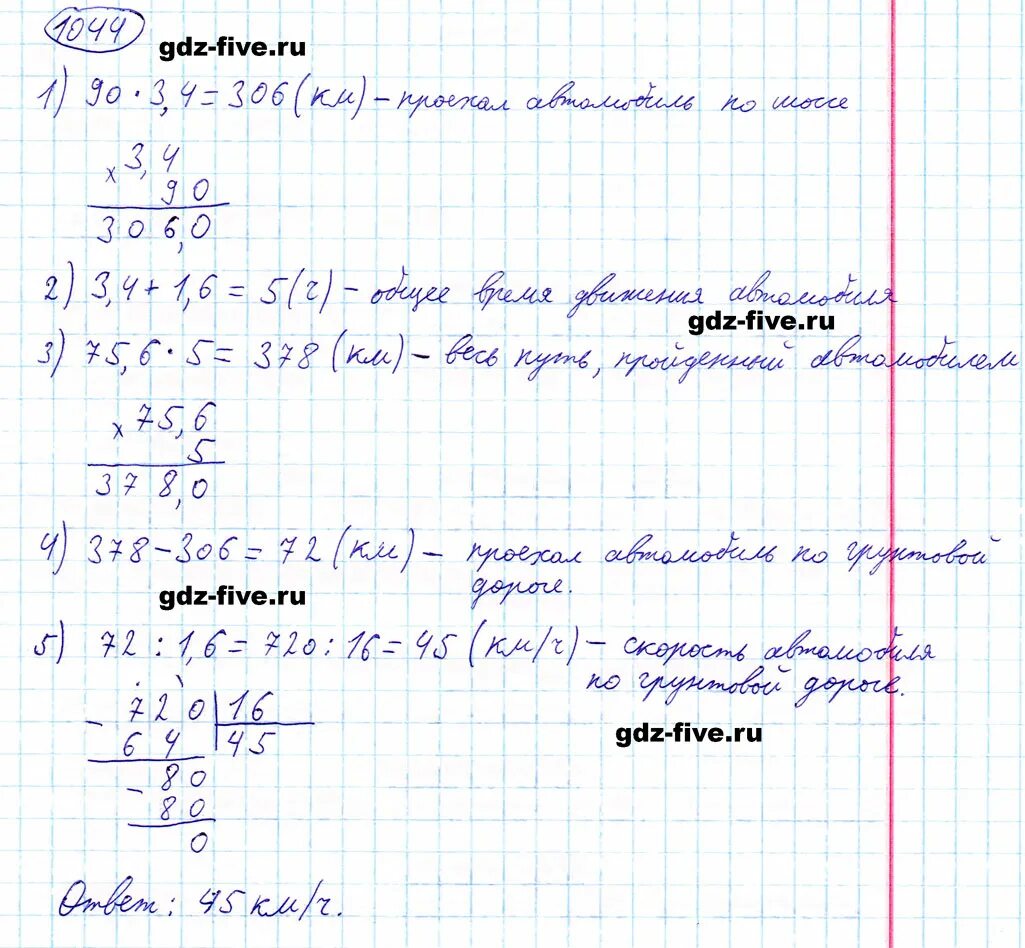 1044
gdz-five.ru
1) 90 · 3,4 = 306 (км) – проехал автомобиль по шоссе
× 3,4
90
306,0
2) 3,4 + 1,6 = 5 (ч) – общее время движения автомобиля
gdz-five.ru
3) 75,6 · 5 = 378 (км) – весь путь, пройденный автомобилем
× 75,6
5
378,0
4) 378 – 306 = 72 (км) – проехал автомобиль по грунтовой
дороге.
gdz-five.ru
5) 72 : 1,6 = 720 : 16 = 45 (км/ч) – скорость автомобиля
по грунтовой дороге.
– 720 | 16
64 | 45
gdz-five.ru
– 80
80
0
Ответ: 45 км/ч.